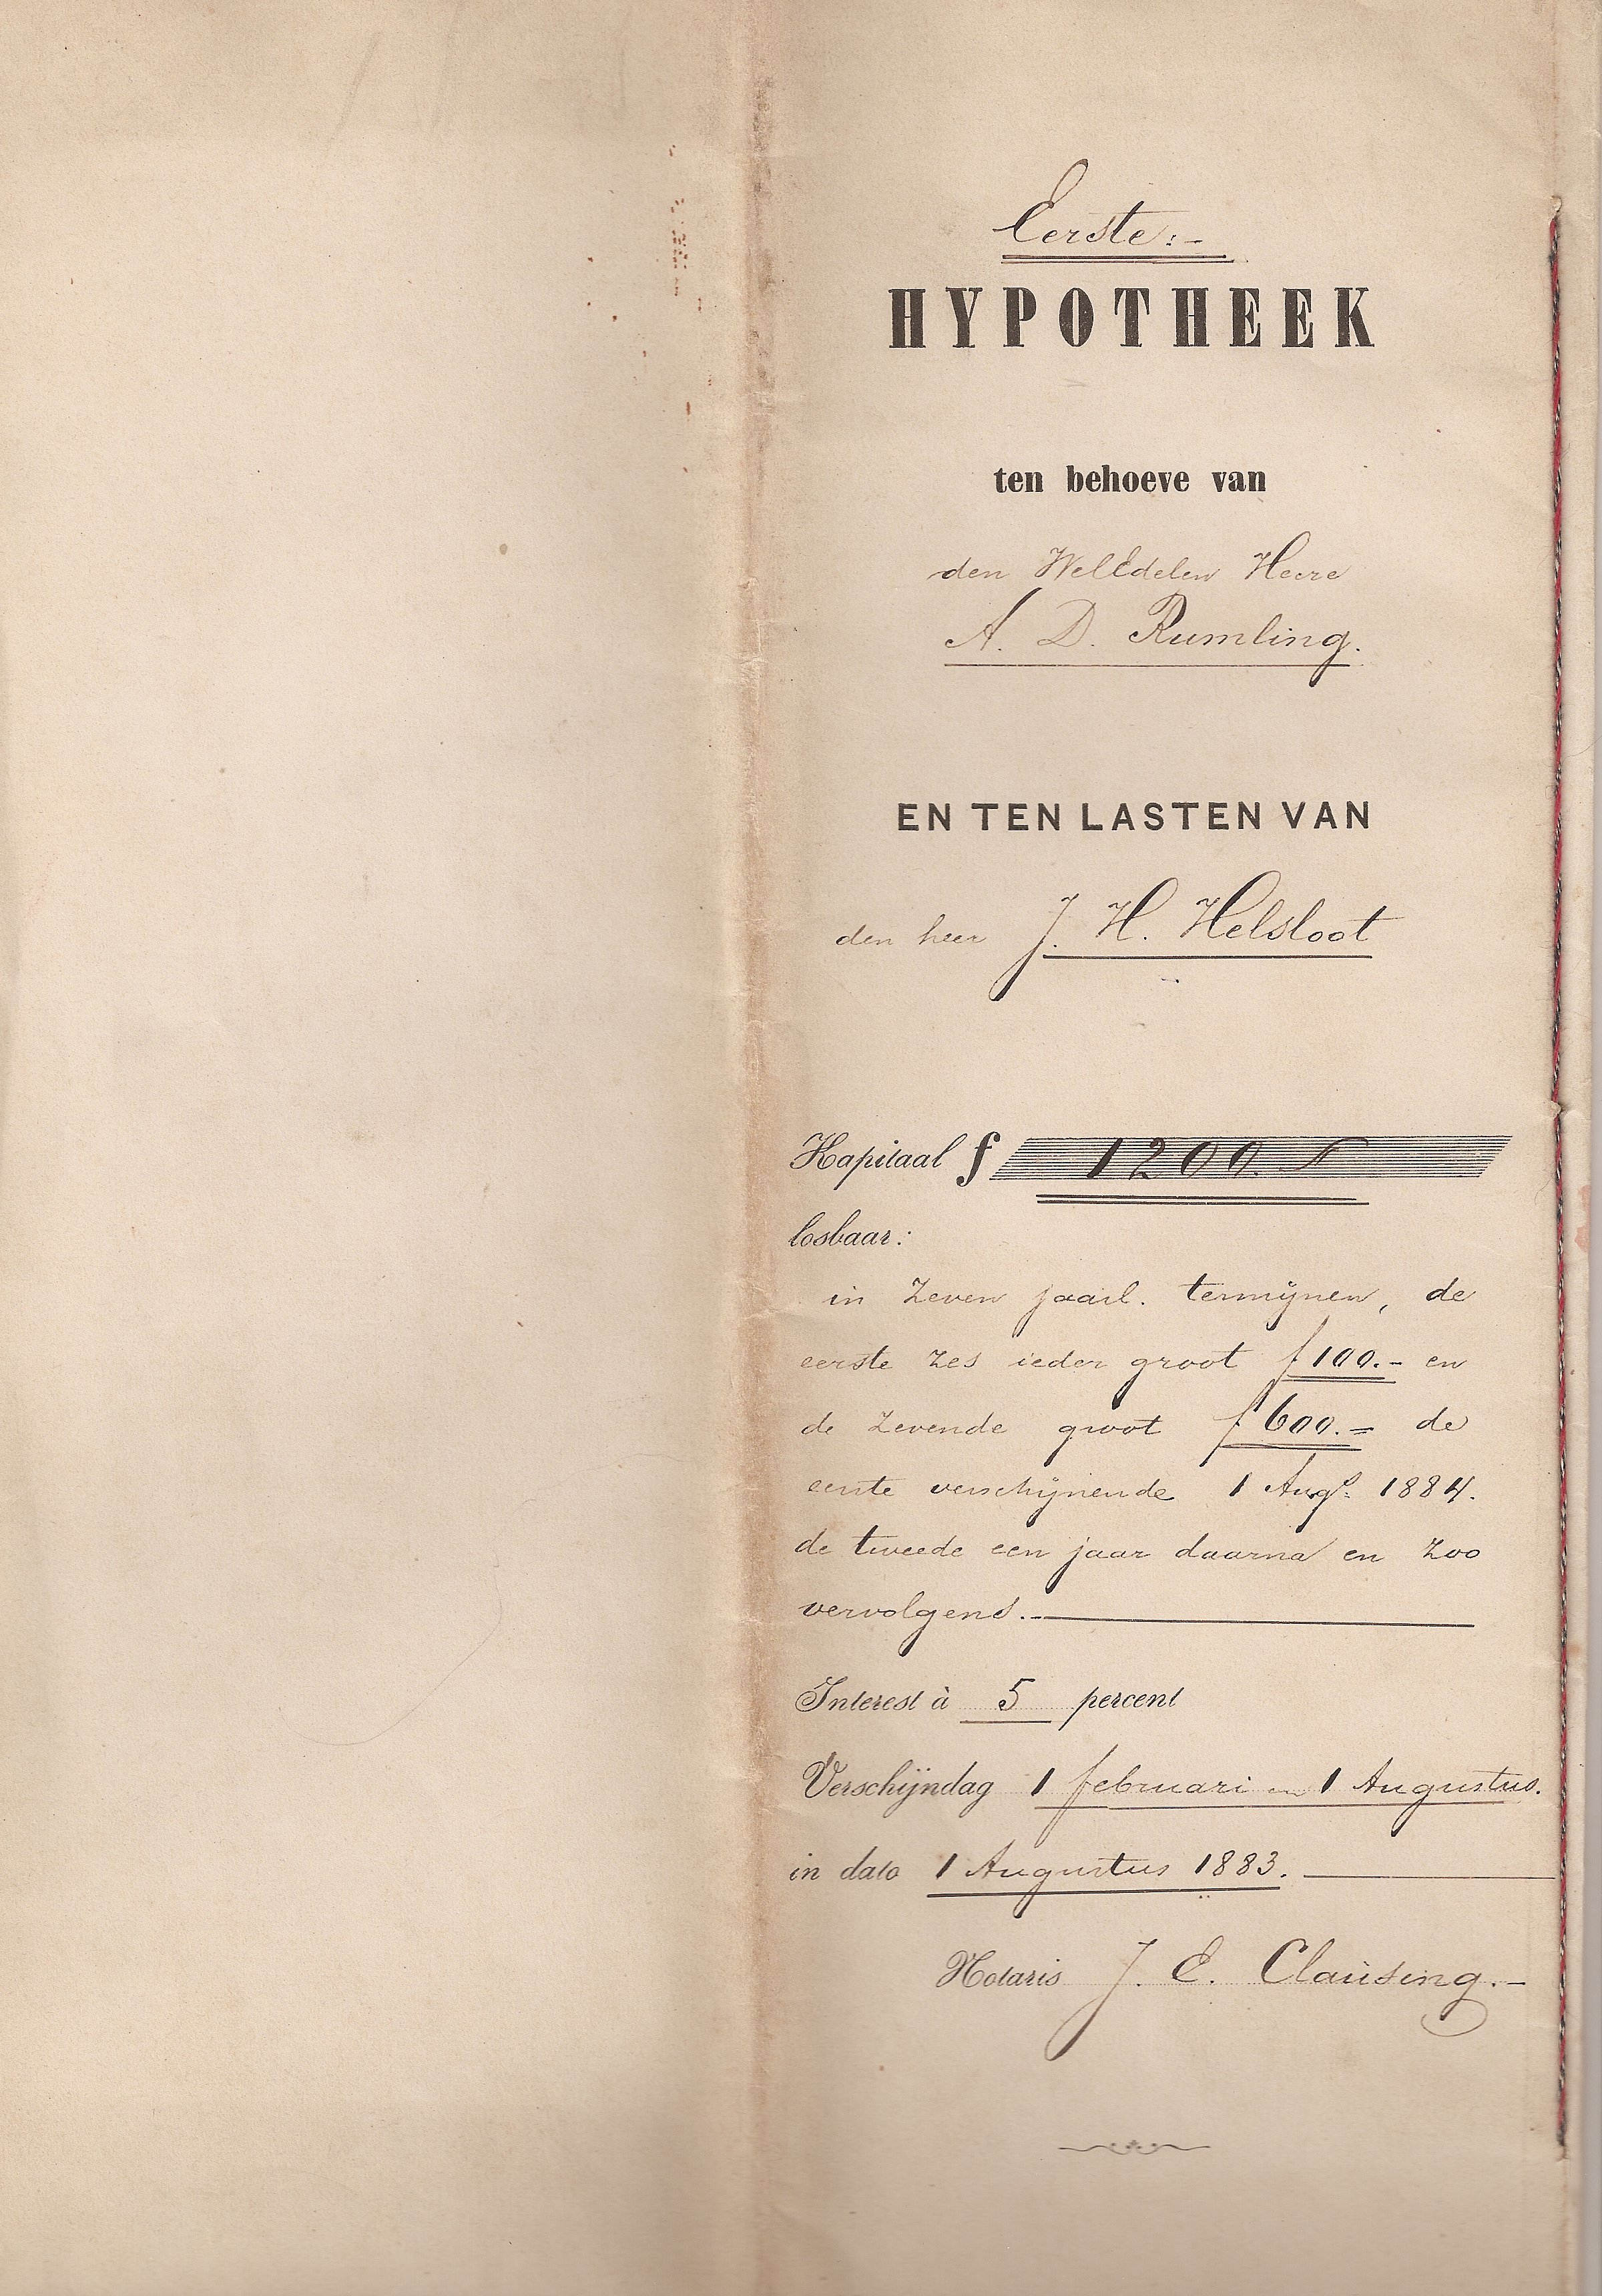 Eerste:-
HYPOTHEEK
ten behoeve van
den WelEdelen Heere
A. D. Rumling.
EN TEN LASTEN VAN
den heer J. H. Helsloot
Kapitaal f 1200.
losbaar:
in zeven jaarl. termijnen, de
eerste zes ieder groot f 100.- en
de zevende groot f 600.= de
eerste verschijnende 1 Augs. 1884.
de tweede een jaar daarna en zoo
vervolgens.-
Interest à 5 percent
Verschijndag 1 februari en 1 Augustus.
in dato 1 Augustus 1883.
Notaris J. E. Clausing.-